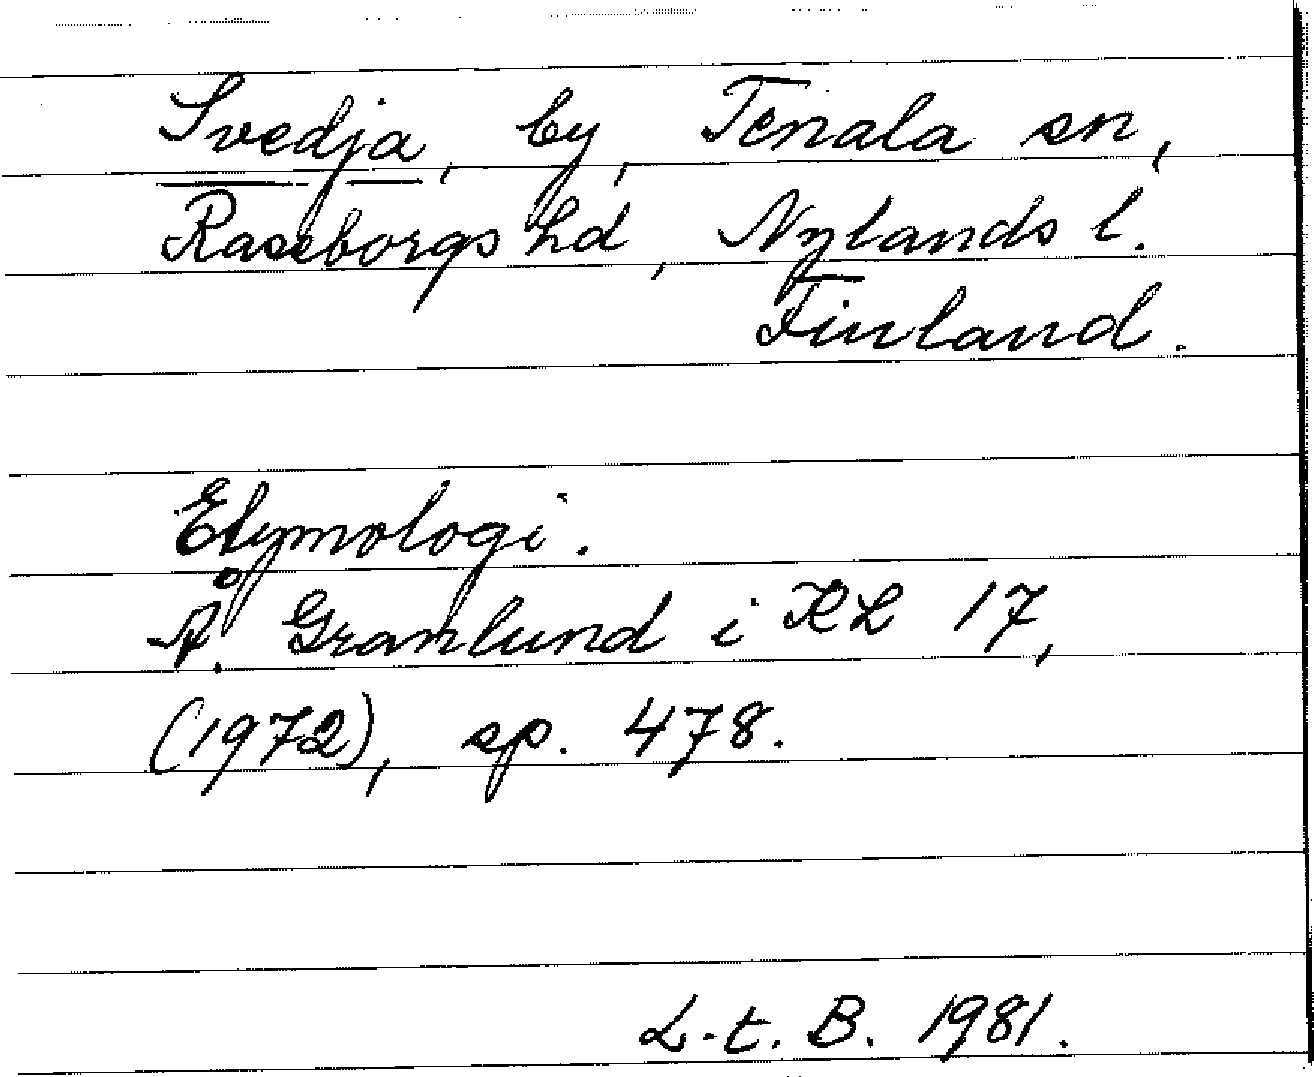 Svedja, by, Tenala sn,
Raseborgs hd, Nylands l.
Finland.
Etymologi.
Å. Granlund i KL 17,
(1972), sp. 478.
L.t. B. 1981.